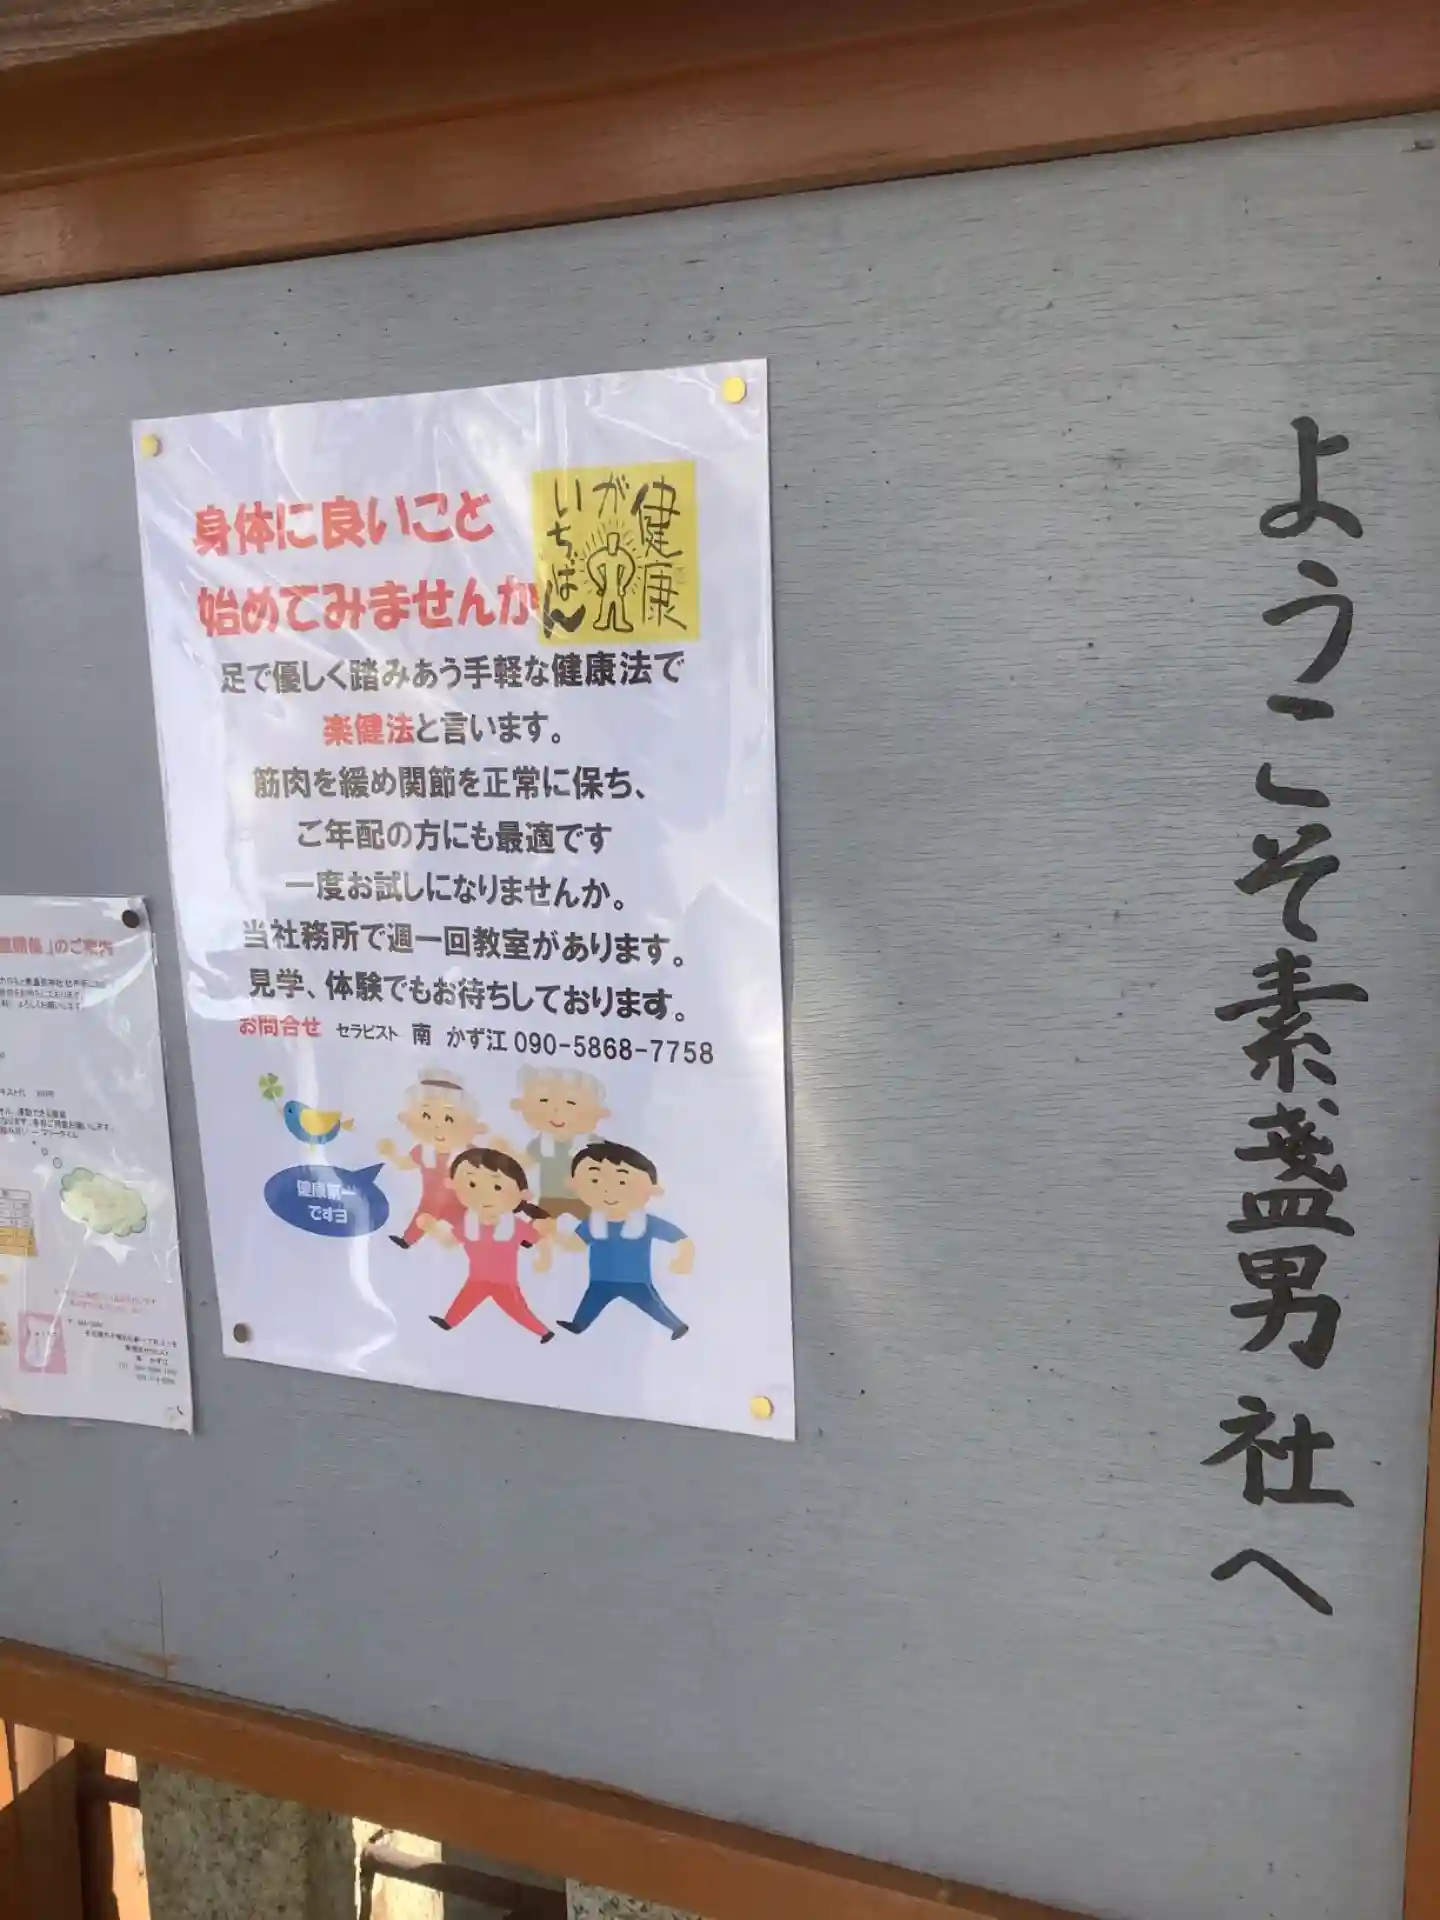 ようこそ素盞男社へ
身体に良いこと
始めてみませんか
健康
が
いちばん
足で優しく踏みあう手軽な健康法で
楽健法と言います。
筋肉を緩め関節を正常に保ち、
ご年配の方にも最適です
一度お試しになりませんか。
当社務所で週一回教室があります。
見学、体験でもお待ちしております。
お問合せ セラピスト 南 かず江 090-5868-7758
健康第一
ですヨ
」のご案内